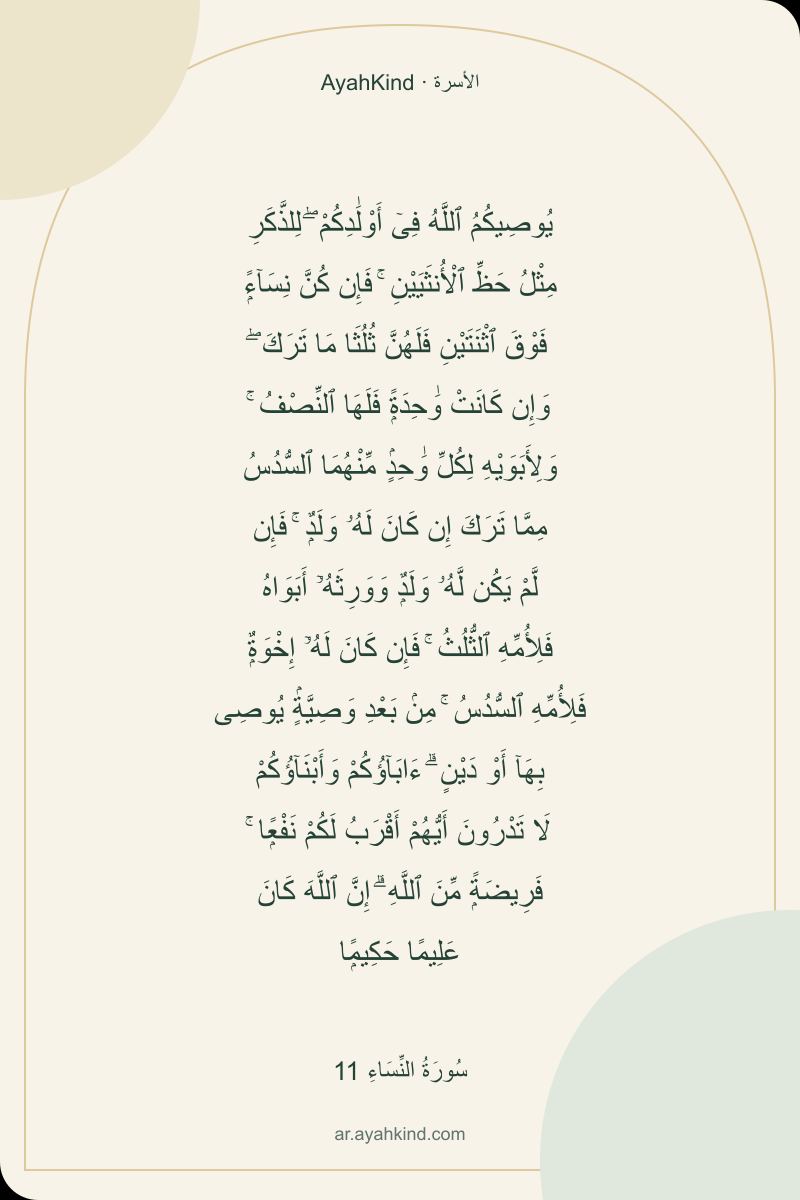 الأسرة · AyahKind
يُوصِيكُمُ ٱللَّهُ فِىٓ أَوْلَٰدِكُمْ ۖ لِلذَّكَرِ
مِثْلُ حَظِّ ٱلْأُنثَيَيْنِ ۚ فَإِن كُنَّ نِسَآءًۭ
فَوْقَ ٱثْنَتَيْنِ فَلَهُنَّ ثُلُثَا مَا تَرَكَ ۖ
وَإِن كَانَتْ وَٰحِدَةًۭ فَلَهَا ٱلنِّصْفُ ۚ
وَلِأَبَوَيْهِ لِكُلِّ وَٰحِدٍۢ مِّنْهُمَا ٱلسُّدُسُ
مِمَّا تَرَكَ إِن كَانَ لَهُۥ وَلَدٌۭ ۚ فَإِن
لَّمْ يَكُن لَّهُۥ وَلَدٌۭ وَوَرِثَهُۥٓ أَبَوَاهُ
فَلِأُمِّهِ ٱلثُّلُثُ ۚ فَإِن كَانَ لَهُۥٓ إِخْوَةٌۭ
فَلِأُمِّهِ ٱلسُّدُسُ ۚ مِنۢ بَعْدِ وَصِيَّةٍۢ يُوصِى
بِهَآ أَوْ دَيْنٍ ۗ ءَابَآؤُكُمْ وَأَبْنَآؤُكُمْ
لَا تَدْرُونَ أَيُّهُمْ أَقْرَبُ لَكُمْ نَفْعًۭا ۚ
فَرِيضَةًۭ مِّنَ ٱللَّهِ ۗ إِنَّ ٱللَّهَ كَانَ
عَلِيمًا حَكِيمًۭا
سُورَةُ النِّسَاءِ 11
ar.ayahkind.com